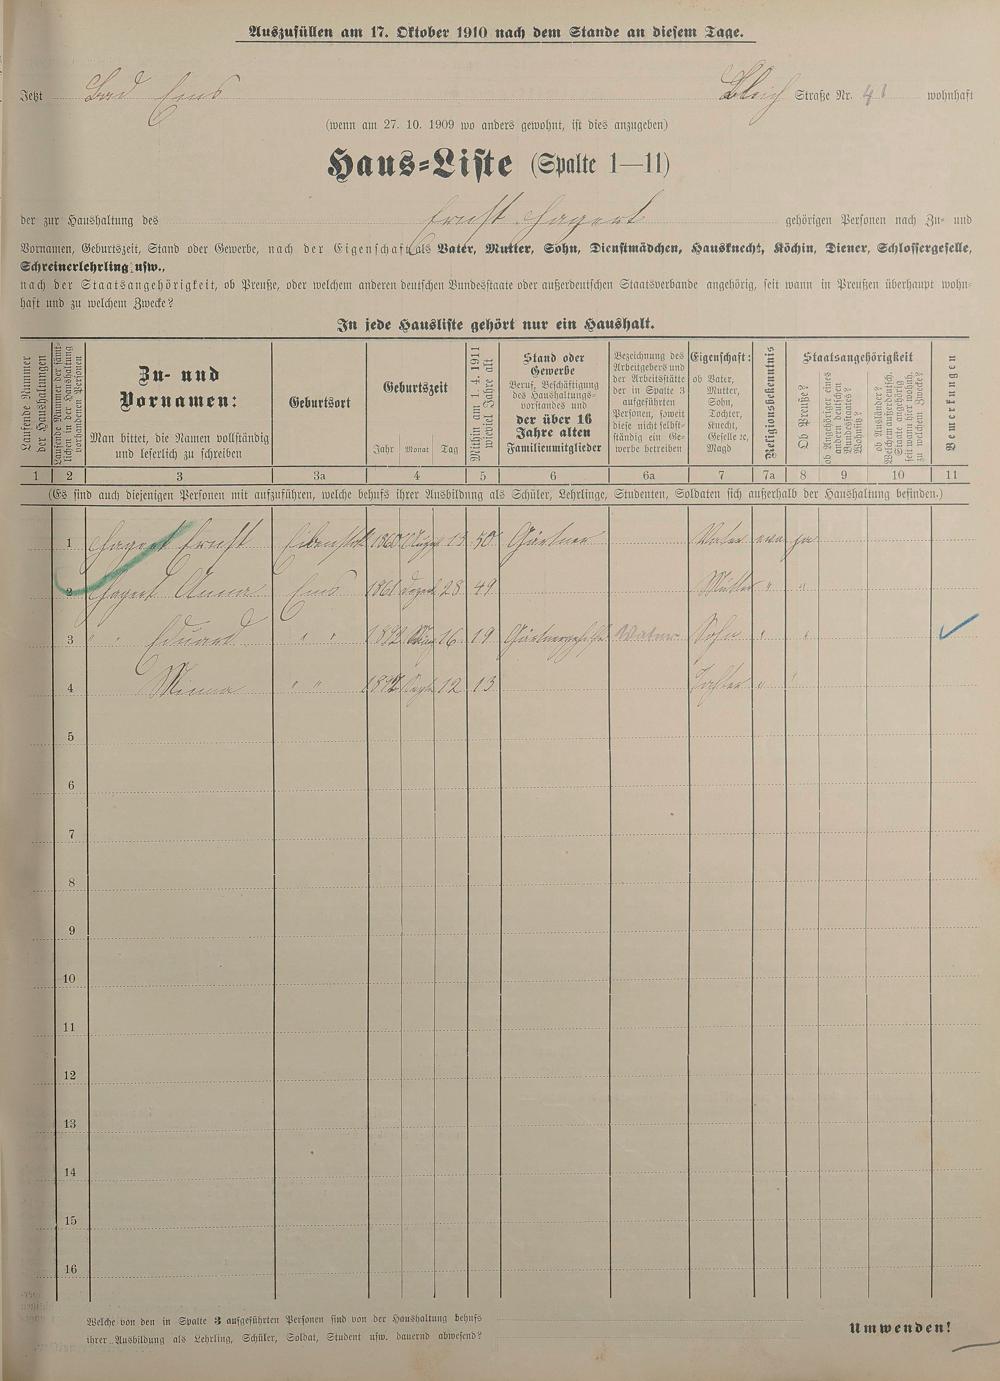 Auszufüllen am 17. Oktober 1910 nach dem Stande an diesem Tage.
Jetzt Bad Ems Bleich Straße Nr. 41 wohnhaft
(wenn am 27. 10. 1909 wo anders gewohnt, ist dies anzugeben)
Haus-Liste (Spalte 1—11)
der zur Haushaltung des Ernst Hagert gehörigen Personen nach Zu- und
Vornamen, Geburtszeit, Stand oder Gewerbe, nach der Eigenschaft als Vater, Mutter, Sohn, Dienstmädchen, Hausknecht, Köchin, Diener, Schlossergeselle,
Schreinerlehrling usw.,
nach der Staatsangehörigkeit, ob Preuße, oder welchem anderen deutschen Bundesstaate oder außerdeutschen Staatsverbande angehörig, seit wann in Preußen überhaupt wohn-
haft und zu welchem Zwecke?
In jede Hausliste gehört nur ein Haushalt.
Laufende Nummer
der Haushaltungen
Laufende Nummer der sämt-
lichen in der Haushaltung
vorhandenen Personen
Zu- und
Vornamen:
Man bittet, die Namen vollständig
und leserlich zu schreiben
Geburtsort
Geburtszeit
Jahr Monat Tag
Mithin am 1. 4. 1911
wieviel Jahre alt
Stand oder
Gewerbe
Beruf, Beschäftigung
des Haushaltungs-
vorstandes und
der über 16
Jahre alten
Familienmitglieder
Bezeichnung des
Arbeitgebers und
der Arbeitsstätte
der in Spalte 3
aufgeführten
Personen, soweit
diese nicht selbst-
ständig ein Ge-
werbe betreiben
Eigenschaft:
ob Vater,
Mutter,
Sohn,
Tochter,
Knecht,
Geselle ꝛc,
Magd
Religionsbekenntnis
Staatsangehörigkeit
Ob Preuße?
ob Angehöriger eines
andern deutschen
Bundesstaates?
Wohnsitz?
ob Ausländer?
Welchem außerdeutsch.
Staate angehörig
seit wann hier wohnh.
zu welchem Zwecke?
Bemerkungen
1 2 3 3a 4 5 6 6a 7 7a 8 9 10 11
(Es sind auch diejenigen Personen mit aufzuführen, welche behufs ihrer Ausbildung als Schüler, Lehrlinge, Studenten, Soldaten sich außerhalb der Haushaltung befinden.)
1 Hagert Ernst Eibenstock 1860 August 13 50 Gärtner Vater eva ja
2 Hagert Anna Ems 1861 28 49 Mutter " "
3 " " Eduard " " 16 19 Gärtnergehilfe Sohn " "
4 Minna " " 12 13 Tochter "
5
6
7
8
9
10
11
12
13
14
15
16
Welche von den in Spalte 3 aufgeführten Personen sind von der Haushaltung behufs
ihrer Ausbildung als Lehrling, Schüler, Soldat, Student usw. dauernd abwesend?
Umwenden!